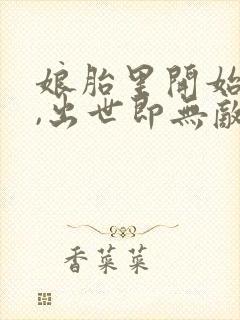 娘胎里開始
,出世即無敵
香菜菜